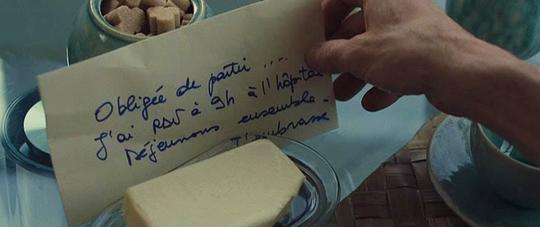 Obligée de partir ...
J'ai RDV à 9h à l'hôpital
Déjeunons ensemble -
T'embrasse